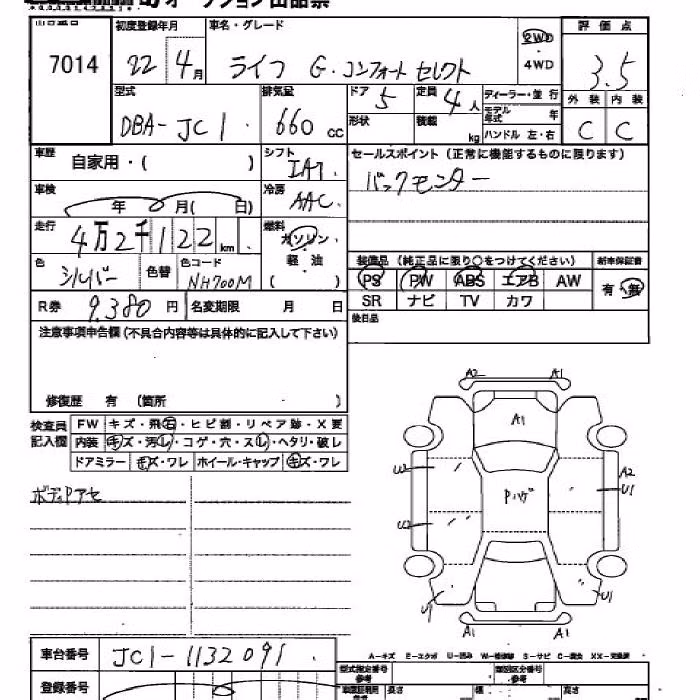 オークション出品票
7014
初度登録年月
22 4月
車名・グレード
ライフ G・コンフォート セレクト
2WD
・
4WD
評価点
3.5
外装 内装
C C
型式
DBA-JC1
排気量
660 cc
ドア 5
定員 4人
形状
積載 kg
ディーラー・並行
モデル年式 年
ハンドル 左・右
車歴
自家用・(　　)
シフト
IAT
セールスポイント (正常に機能するものに限ります)
バックモニター
車検
年 月( 日)
冷房
AAC
走行
4万2千122km
燃料
ガソリン・
軽油
(　　)
色
シルバー
色替
色コード
NH700M
装備品 (純正品に限り○をつけてください)
新車保証書
PS PW ABS エアB AW
SR ナビ TV カワ
有・無
R券 9,380円
名変期限 月 日
後日品
注意事項申告欄 (不具合内容等は具体的に記入して下さい)
修復歴 有 (箇所　　)
検査員
記入欄
FW キズ・飛石・ヒビ割・リペア跡・X要
内装 キズ・汚レ・コゲ・穴・スレ・ヘタリ・破レ
ドアミラー キズ・ワレ ホイール・キャップ キズ・ワレ
ボディPアセ
A2 A1
A1
W2 A2
U1
Pハゲ
W2
U1 U1
A1 A1
A-キズ E-エクボ U-凹み W-補修跡 S-サビ C-腐食 XX-交換済
車台番号 JC1-1132091
登録番号
型式指定番号
参考
類別区分番号
参考
長さ 幅 高さ